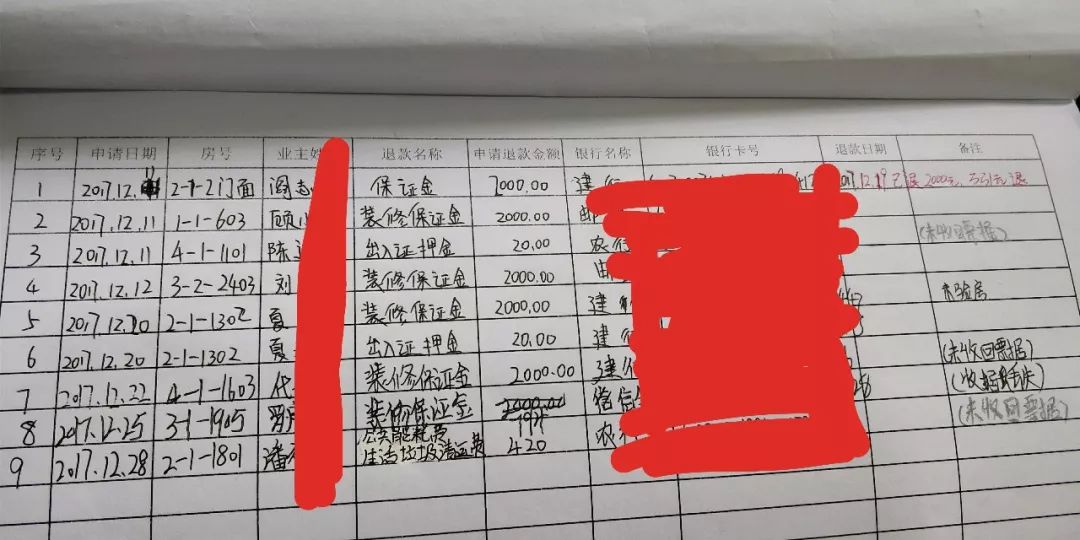 序号 申请日期 房号 业主姓 退款名称 申请退款金额 银行名称 银行卡号 退款日期 备注
1 2017.12.11 2-1-2门面 阎志 保证金 2000.00 建行 2017.12.19已退2000元,
2 2017.12.11 1-1-603 顾 装修保证金 2000.00 邮
3 2017.12.11 4-1-1101 陈 出入证押金 20.00 农行 (未收回票据)
4 2017.12.12 3-2-2403 刘 装修保证金 2000.00 由
5 2017.12.20 2-1-1302 夏 装修保证金 2000.00 建行 未验房
6 2017.12.20 2-1-1302 夏 出入证押金 20.00 建行
7 2017.12.22 4-1-1603 代 装修保证金 2000.00 建行 (未收回票据)
8 2017.12.25 3-1-1905 罗 装修保证金 2000.00 信信 (收据丢失)
9 2017.12.28 2-1-1801 潘 公共能耗费 农行 (未收回票据)
生活垃圾清运费 420